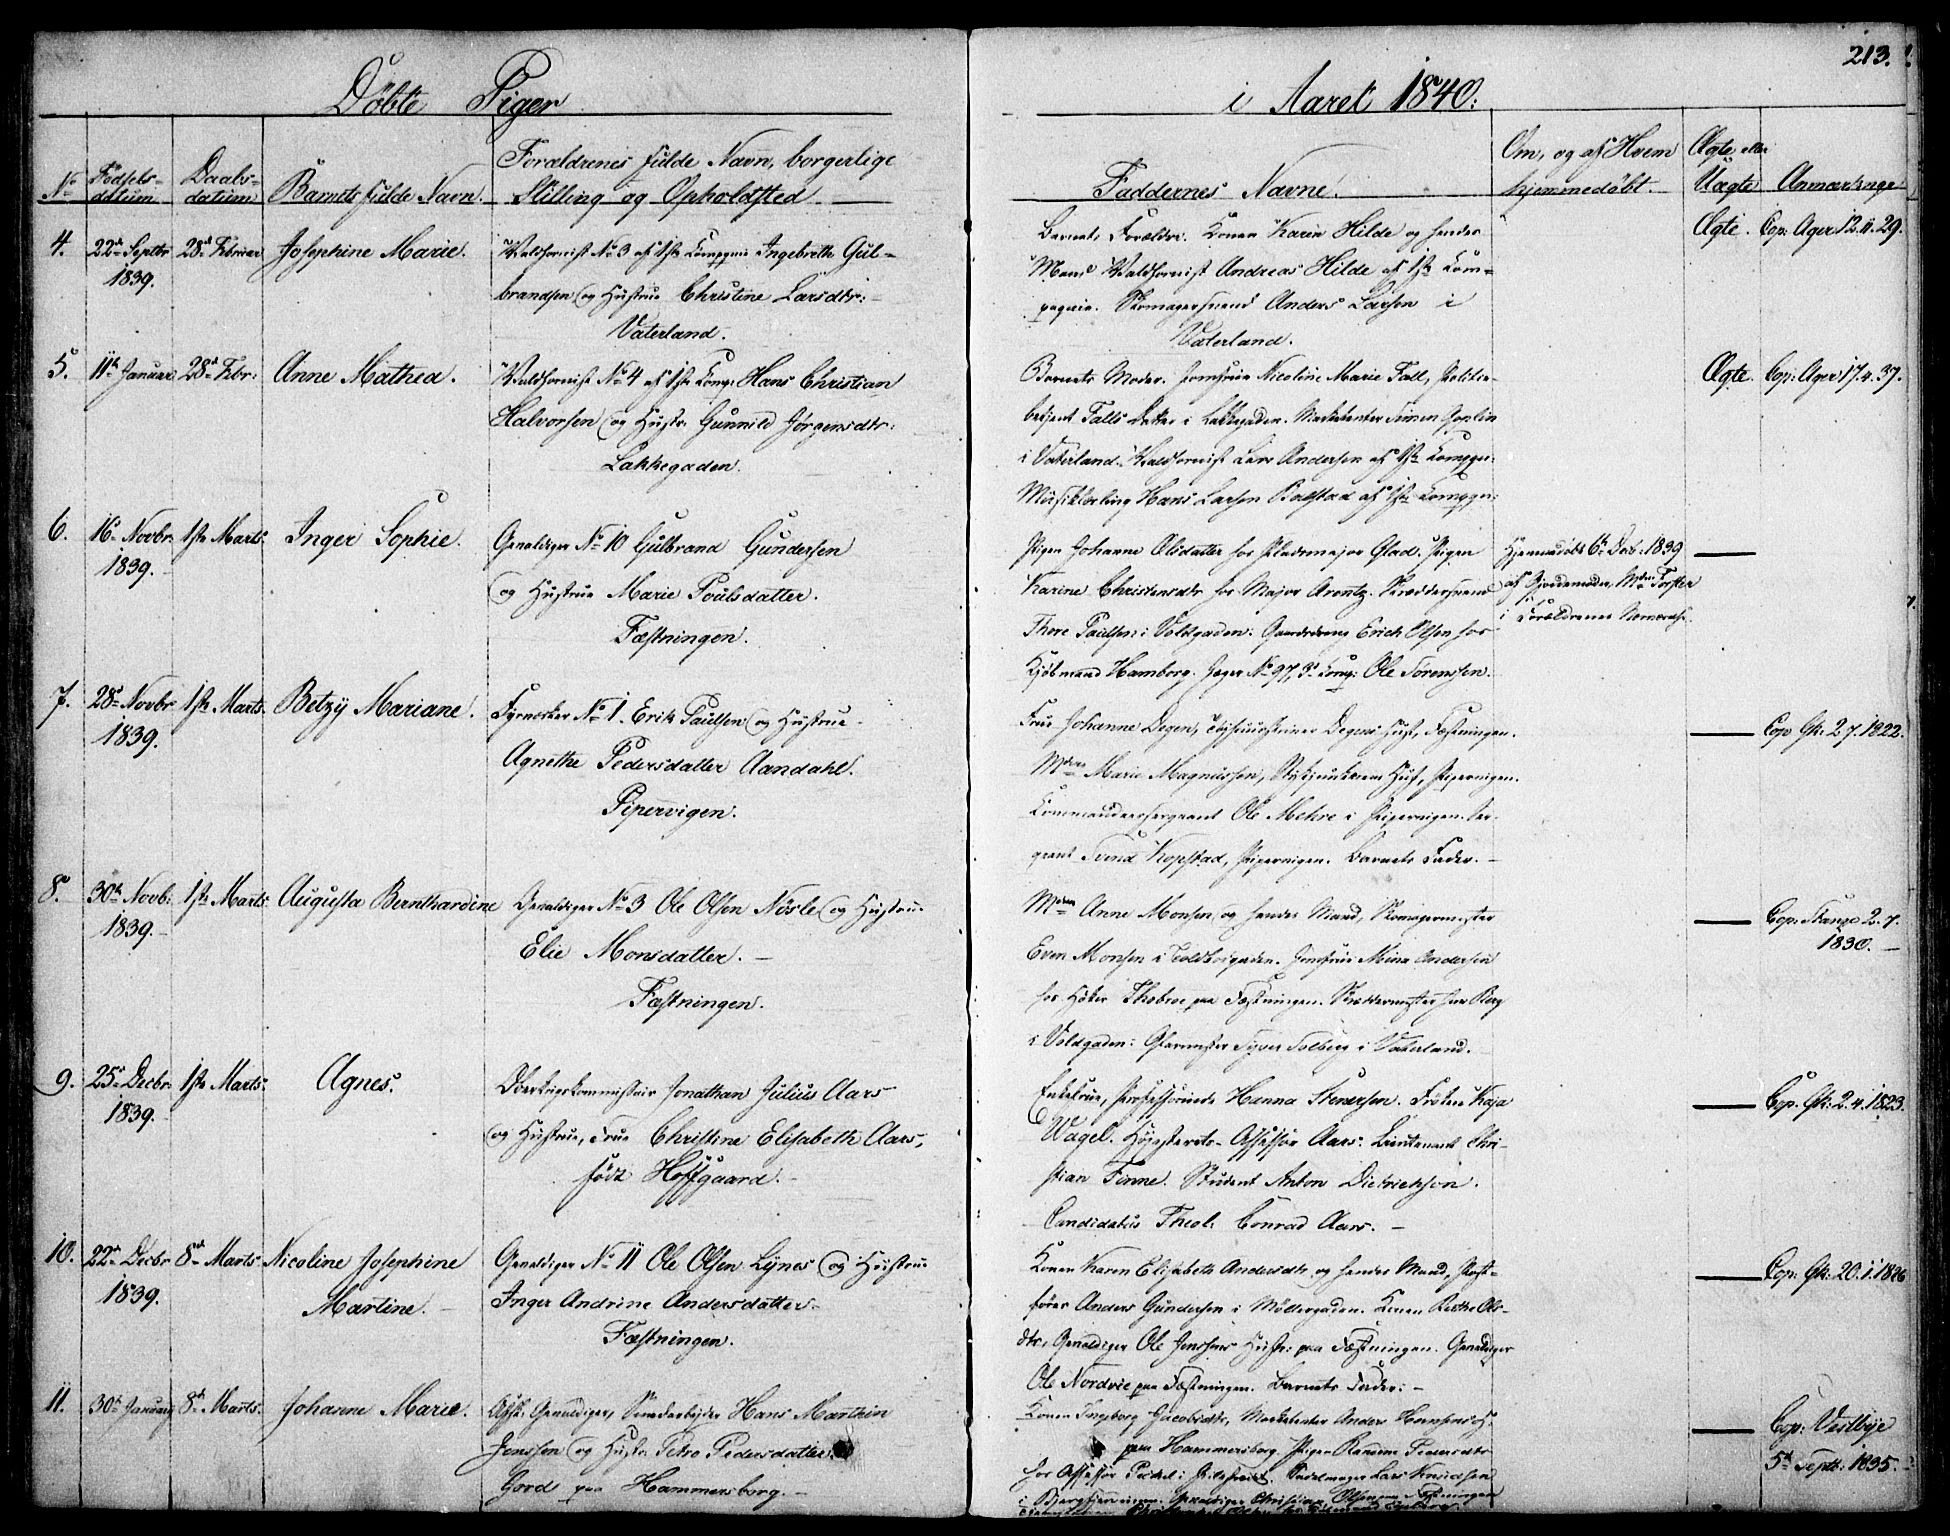 213.
Döbte Piger
i Aaret 1840.
No
Födsels-
datum
Daabs-
datum
Barnets fulde Navn.
Forældrenes fulde Navn, borgerlige
Stilling og Opholdsted
Faddernes Navne.
Om, og af Hvem
hjemmedöbt.
Ægte eller
Uægte
4.
22de Septbr
1839.
28de Februar
Josephine Marie.
Valdhornist No 3 af 1ste Ingebreth Gul-
brandsen og Hustrue Christine Larsdtr:
Vaterland.
Barnets Forældre. Konen Karen Hilde og hendes
Mand Valdhornist Andreas Hilde af 1ste Kom-
pagnie. Skomagersvend Anders Larsen i
Vaterland.
Ægte.
Cop: Ager 12.11.29.
5.
11te Januar
28de Febr:
Anne Mathea.
Valdhornist No 4 af 1ste Komp: Hans Christian
Halvorsen og Hustr: Gunnild Jörgensdtr:
Lakkegaden.
Barnets Moder. Jomfrue Nicoline Marie Fall, Politie-
betjent Falls Datter i Lakkegaden. Marketenter Simen
i Vaterland. Valdhornist Lars Andersen af 1ste
Hans Larsen af 1ste
Ægte.
Cop: Ager 17.4.37.
6.
16de Novbr
1839.
1ste Marts.
Inger Sophie.
Gevaldiger No 10 Gulbrand Gundersen
og Hustrue Marie Poulsdatter.
Fæstningen.
Pigen Johanne Olsdatter hos Pladsmajor Glad. Pigen
Karine Christensdtr hos Major Arentz. Skræddersvend
Thore Paulsen i Voldgaden. Gaardsdreng Erich Olsen hos
Kjöbmand Hamborg. Jæger No 97, 3die Komp: Ole Sörenssen.
Hjemmedöbt 6te Decbr: 1839
af Gjordemoder, Mdme Forster
i Forældrenes
7.
28de Novbr
1839.
1ste Marts.
Betzy Mariane.
Fyrværker No 1. Erik Paulsen og Hustrue
Agnethe Pedersdatter Aandahl.
Pipervigen.
Frue Johanne Degen, Degens Hust, Fæstningen.
Mdme Marie Magnussen, Hust, Pipervigen.
Kommandeersergeant Ole Mehre i Pipervigen. Ser-
geant Svend Kopstad, Pipervigen. Barnets Fader.
Cop Gk: 2.7.1822.
8.
30te Novb:
1839.
1ste Marts.
Augusta Bernthardine
Gevaldiger No 3 Ole Olsen Nösle og Hustrue
Elie Monsdatter.
Fæstningen.
Mdme Anne Monsen og hendes Mand, Skomagermester
Even Monsen i Toldbodgaden. Jomfrue Mina Andersen
hos Höker paa Fæstningen. Skræddermester Berg
i Voldgaden. Glarmester Syver Solberg i Vaterland.
Cop: 2.7.
1830.
9.
25de Decbr
1839.
1ste Marts.
Agnes.
Overkrigskommissair Jonathan Julius Aars
og Hustrue, Frue Christine Elisabeth Aars,
född Hoffgaard.
Enkefrue, Professorinde Hanna Stenersen. Fröken Kaja
Wagel. Höiesterets-Assessor Aars. Lieutenant Chri-
stian Finne. Student Anton Dietrichson.
Candidatus Theol. Conrad Aars.
Cop. Gk: 2.4.1823.
10.
22de Decbr
1839.
8de Marts
Nicoline Josephine
Martine.
Gevaldiger No 11 Ole Olsen Lynes og Hustrue
Inger Andrine Andersdatter
Fæstningen.
Konen Karen Elisabeth Andersdtr og hendes Mand, Post-
förer Anders Gundersen i Möllergaden. Konen Berthe Ols-
dtr, Gevaldiger Ole Jenssens Hustr: paa Fæstningen. Gevaldiger
Ole Nordvie paa Fæstningen. Barnets Fader.
Cop: Gk: 20.1.1826
11.
30te Januar
8de Marts.
Johanne Marie.
Afsk: Gevaldiger, Hans Marthin
Jenssen og Hustr: Petro Pedersdatter
Gord paa Hammersborg.
Konen Ingeborg Jacobsdtr, Marketenter Anders Hansens H:
paa Hammersborg. Pigen Pedersdtr
hos Assessor Lars Knudsen
Gevaldiger Christian Olsen Fæstningen
Cop: Vestbye
5te Septb: 1835.